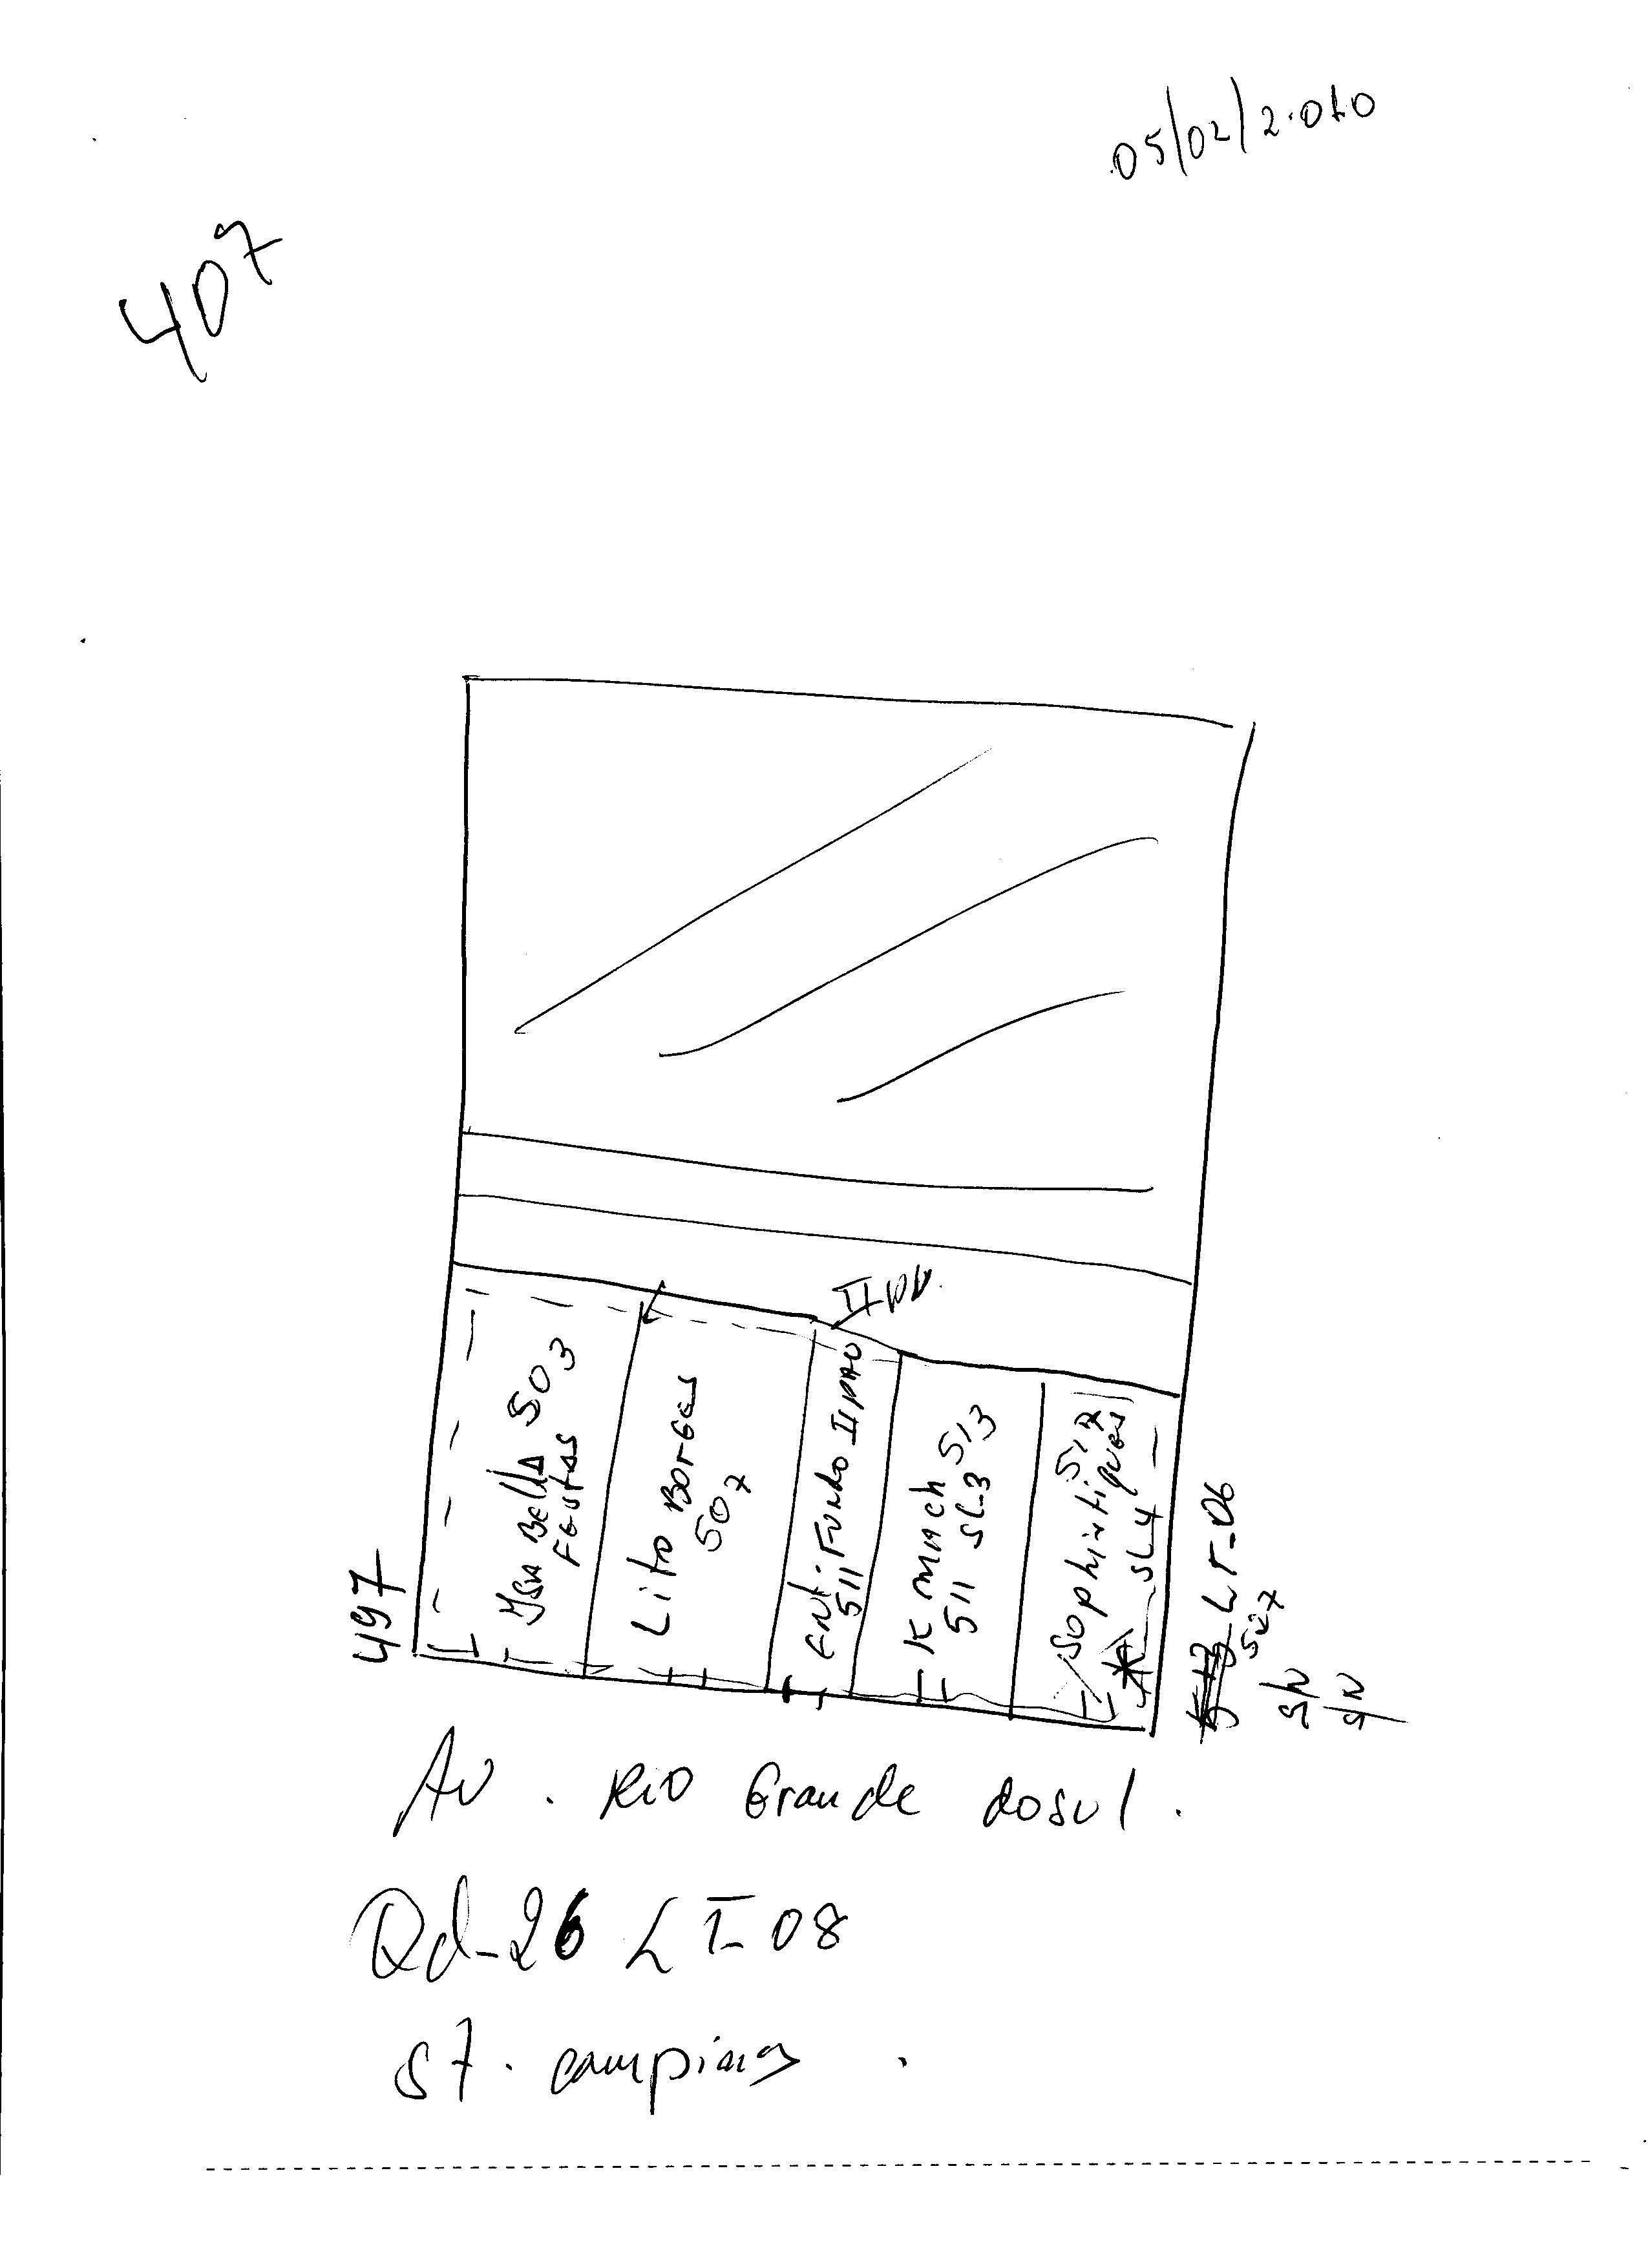 05/02/2.010
407
II PAV.
Isa Bella 503
Festas
Lito Borges
507
Ent. Fundo II PAV
511
K mach 513
511 SL-3
517
SL-4
497
LT-06
527
S/N
S/N
Av. Rio Grande do sul.
Qd-26 LT-08
St. campinas.